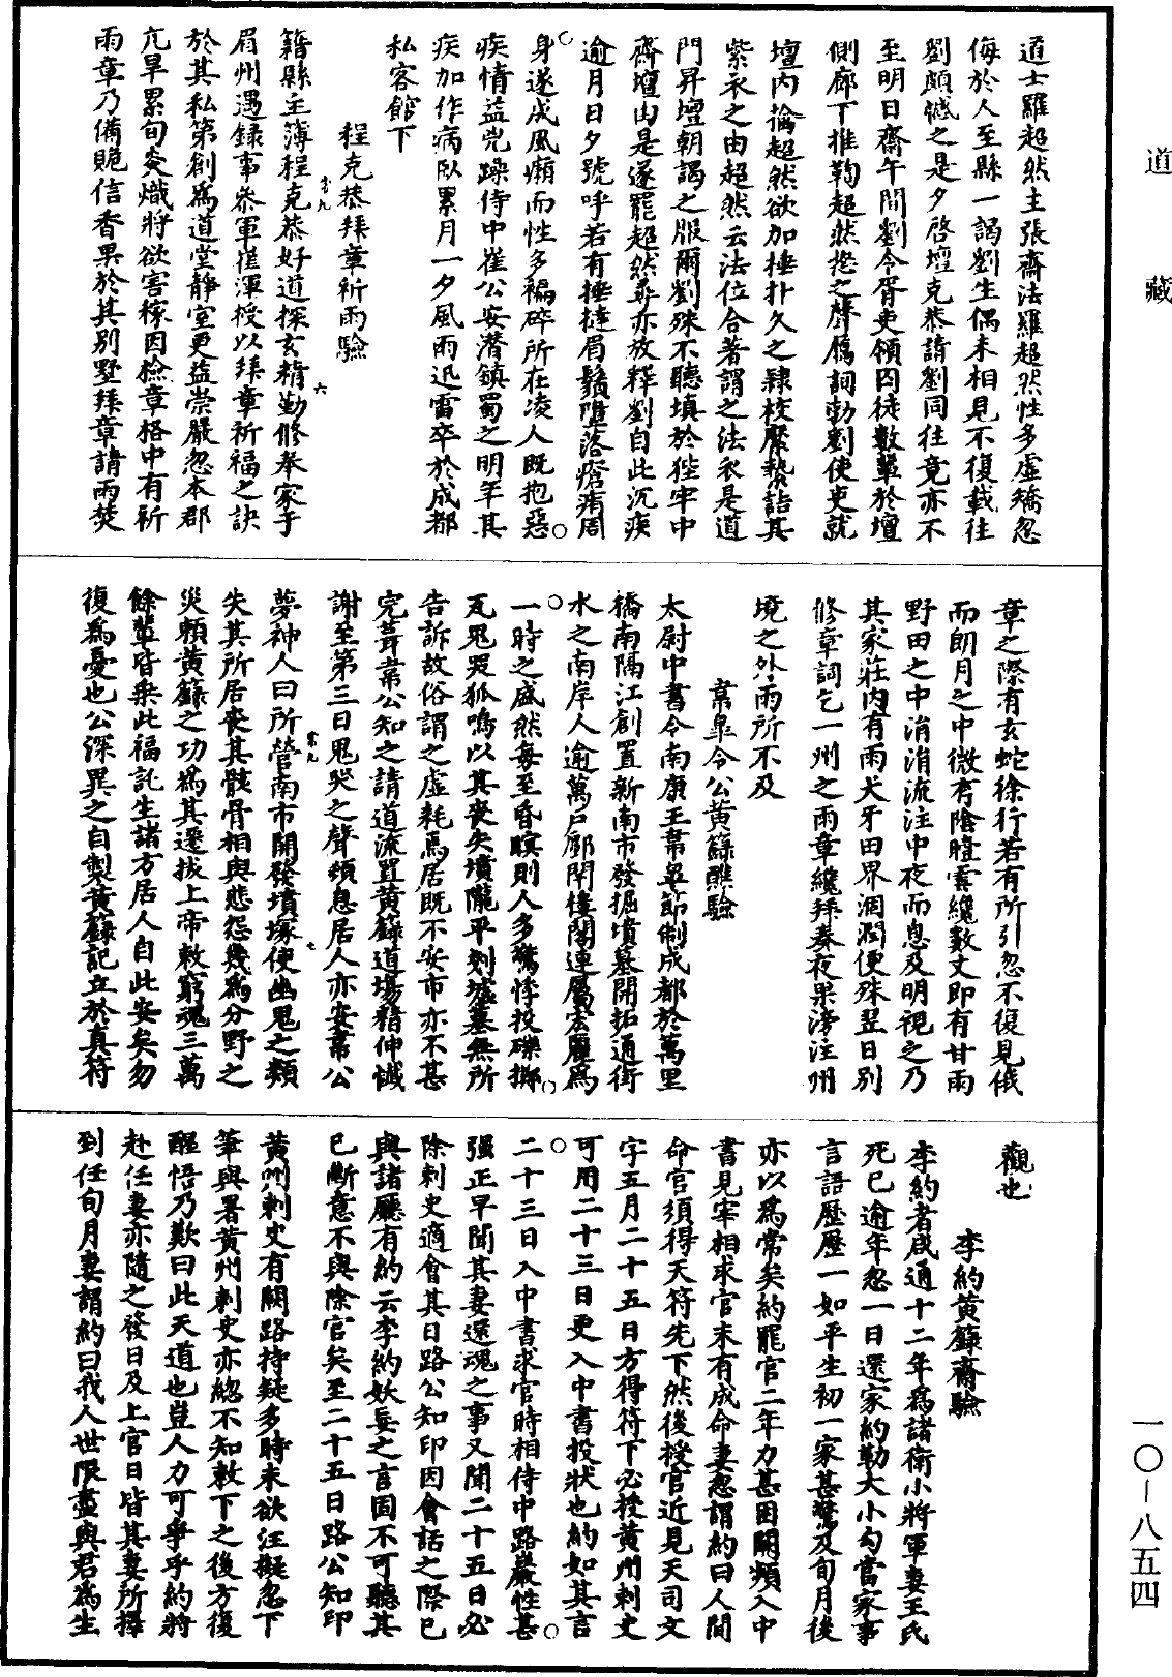 道士羅超然主張齋法羅超然性多虛矯忽
侮於人至縣一謁劉生偶未相見不復載往
劉頗憾之是夕啓壇克恭請劉同往竟亦不
至明日齋午間劉令胥吏領囚徒數輩於壇
側廊下推鞫超然挖之聲厲詞勃劉使吏就
壇內擒超然欲加捶扑久之隸校縻縶詣其
紫衣之由超然云法位合著謂之法衣是道
門昇壇朝謁之服爾劉殊不聽填於狴牢中
齋壇由是遂罷超然尋亦放釋劉自此沉疾
逾月日夕號呼若有捶撻眉鬚墮落瘡痏周
身遂成風癩而性多褊碎所在凌人既抱惡
疾情益兇躁侍中崔公安潛鎮蜀之明年其
疾加作病臥累月一夕風雨迅雷卒於成都
私客館下
程克恭拜章祈雨驗
籍縣主簿程克恭好道探玄精勤修奉家于
眉州遇錄事參軍崔渾授以拜章祈福之訣
於其私第創爲道堂靜室更益崇嚴忽本郡
亢旱累旬炎熾將欲害稼因檢章格中有祈
雨章乃備貺信香果於其別墅拜章請雨焚
章之際有玄蛇徐行若有所引忽不復見俄
而朗月之中微有陰曀雲纔數丈即有甘雨
野田之中涓涓流注中夜而息及明視之乃
其家莊內有雨犬牙田界涸潤便殊翌日別
修章詞乞一州之雨章纔拜奏夜果滂注州
境之外雨所不及
韋皐令公黃籙醮驗
太尉中書令南康王韋皐節制成都於萬里
橋南隔江創置新南市發掘墳墓開拓通街
水之南岸人逾萬戶廊閈樓閣連屬宏麗爲
一時之盛然每至昏暝則人多驚悸投礫擲
瓦鬼哭狐鳴以其喪失墳隴平剗墟墓無所
告訴故俗謂之虛耗焉居既不安市亦不甚
完葺韋公知之請道流置黃籙道場精伸懺
謝至第三日鬼哭之聲頓息居人亦安韋公
夢神人曰所營南市開發墳塚使幽鬼之類
失其所居喪其骸骨相與悲怨幾爲分野之
災賴黃籙之功爲其遷拔上帝敕窮魂三萬
餘輩皆乘此福託生諸方居人自此安矣勿
復爲憂也公深異之自製黃籙記立於真符
觀也
李約黃籙齋驗
李約者咸通十二年爲諸衛小將軍妻王氏
死已逾年忽一日還家約勒大小勾當家事
言語歷歷一如平生初一家甚驚及旬月後
亦以爲常矣約罷官二年力甚困闕頻入中
書見宰相求官未有成命妻忽謂約曰人間
命官須得天符先下然後授官近見天司文
字五月二十五日方得符下必授黃州刺史
可用二十三日更入中書投狀也約如其言
二十三日入中書求官時相侍中路巖性甚
強正早聞其妻還魂之事又聞二十五日必
除刺史適會其日路公知印因會話之際已
與諸廳有約云李約妖妄之言固不可聽其
已斷意不與除官矣至二十五日路公知印
黃州刺史有闕路持疑多時未欲注擬忽下
筆與署黃州刺史亦總不知敕下之後方復
醒悟乃歎曰此天道也豈人力可爭乎約將
赴任妻亦隨之發日及上官日皆其妻所擇
到任旬月妻謂約曰我人世限盡與君爲生
道藏
一〇-八五四